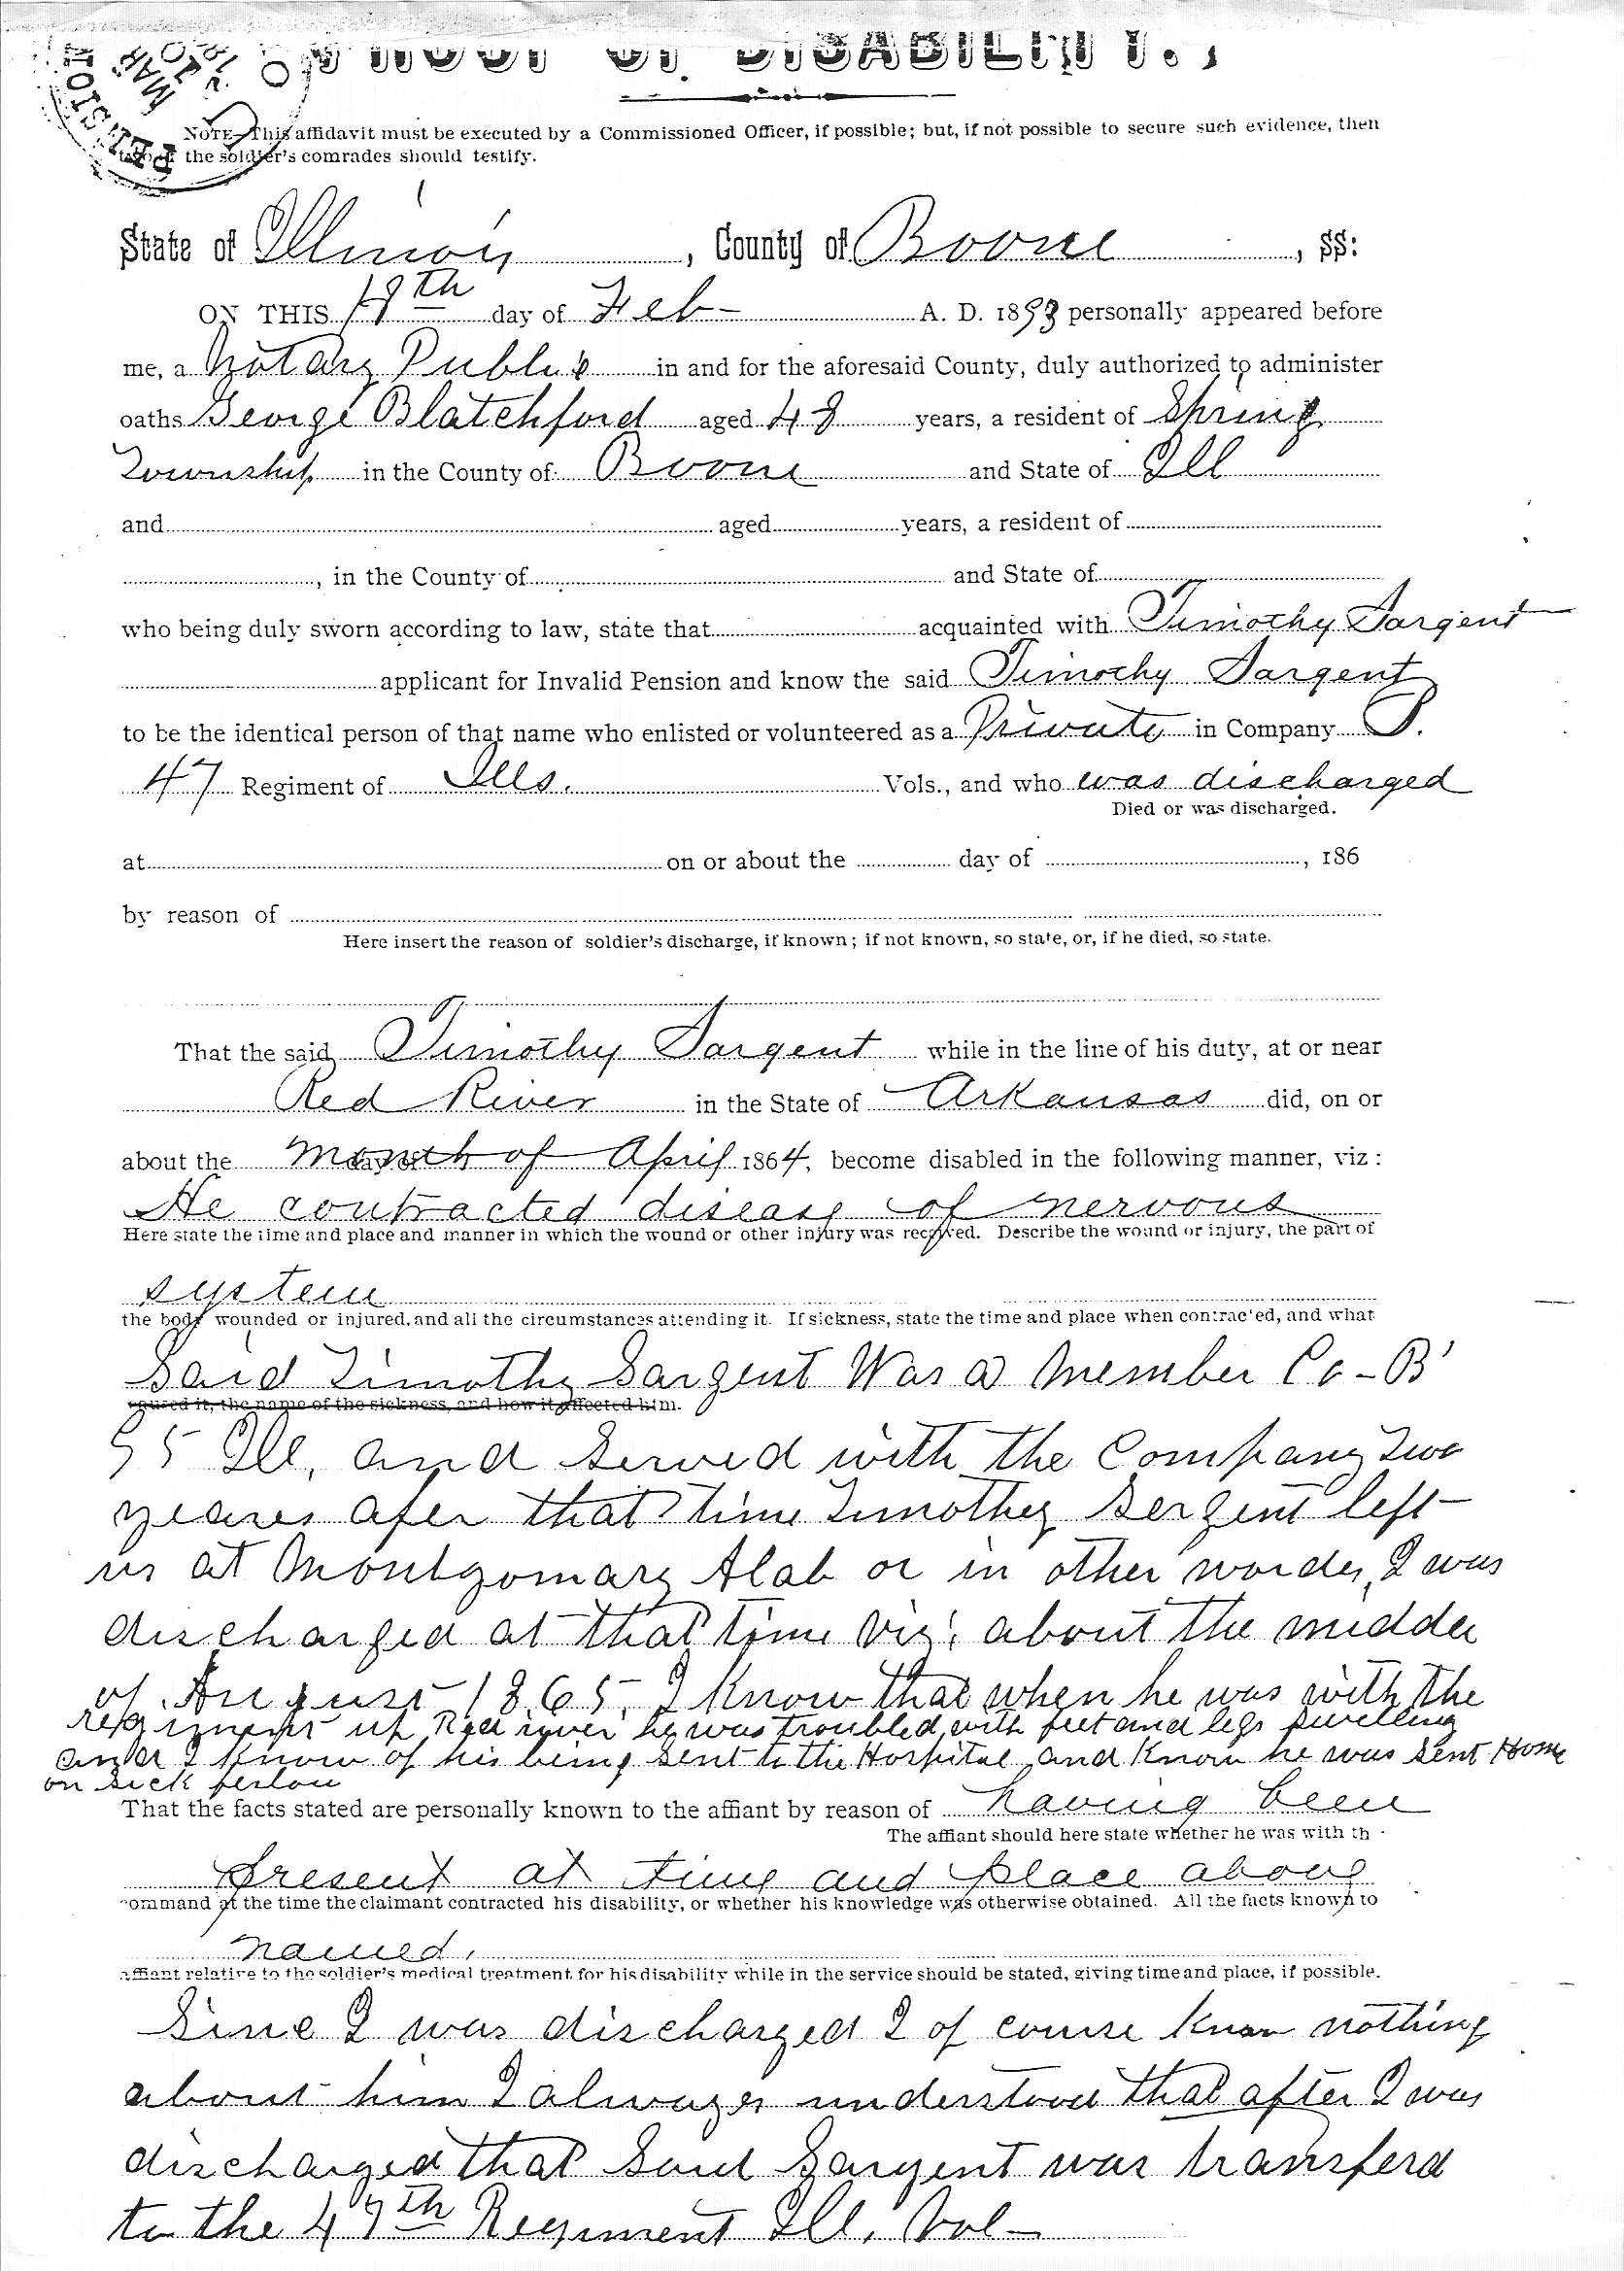 PROOF OF DISABILITY.
PENSION
MAR
NOTE—This affidavit must be executed by a Commissioned Officer, if possible; but, if not possible to secure such evidence, then
two of the soldier's comrades should testify.
State of Illinois, County of Boone, SS:
ON THIS 18th day of Feb- A. D. 1893 personally appeared before
me, a Notary Public in and for the aforesaid County, duly authorized to administer
oaths George Blatchford aged 48 years, a resident of Spring
Township in the County of Boone and State of Ill
and aged years, a resident of
, in the County of and State of
who being duly sworn according to law, state that acquainted with Timothy Sargent
applicant for Invalid Pension and know the said Timothy Sargent
to be the identical person of that name who enlisted or volunteered as a Private in Company
47 Regiment of Ills. Vols., and who was discharged
Died or was discharged.
at on or about the day of , 186
by reason of
Here insert the reason of soldier's discharge, if known; if not known, so state, or, if he died, so state.
That the said Timothy Sargent while in the line of his duty, at or near
Red River in the State of Arkansas did, on or
about the month of April 1864, become disabled in the following manner, viz:
He contracted disease of nervous
Here state the time and place and manner in which the wound or other injury was received. Describe the wound or injury, the part of
system
the body wounded or injured, and all the circumstances attending it. If sickness, state the time and place when contracted, and what
Said Timothy Sargent Was a Member Co-B'
caused it, the name of the sickness, and how it affected him.
95 Ill, and Served with the Company Two
yeares afer that time Timothey Sergent left
us at Montgomary Alab or in other wordes, I was
discharged at that time viz; about the middle
of August 1865, I know that when he was with the
regiment up Red river he was troubled with feet and legs swelling
and I know of his being sent to the Hospital and know he was sent Home
on sick ferlow
That the facts stated are personally known to the affiant by reason of having been
The affiant should here state whether he was with th
present at time and place above
command at the time the claimant contracted his disability, or whether his knowledge was otherwise obtained. All the facts known to
named.
affiant relative to the soldier's medical treatment for his disability while in the service should be stated, giving time and place, if possible.
Sinc I was discharged I of course know nothing
about him I alwayes understood that after I was
discharged that Said Sargent was transferd
to the 47th Regiment Ill, Vol-